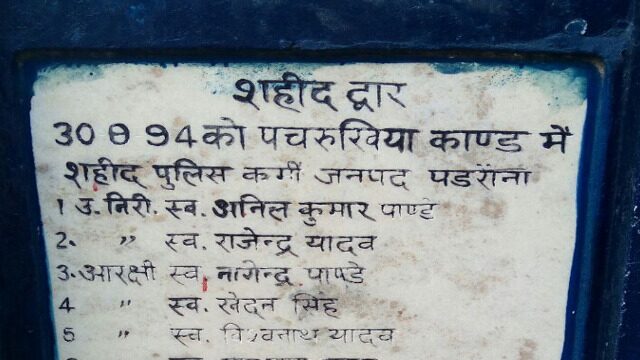 शहीद द्वार
30 8 94 को पचरुखिया काण्ड में
शहीद पुलिस कर्मी जनपद पडरौना
1 उ. निरी. स्व. अनिल कुमार पाण्डे
2. " स्व. राजेन्द्र यादव
3. आरक्षी स्व. नागेन्द्र पाण्डे
4 " स्व. खेदन सिंह
5 " स्व. विश्वनाथ यादव